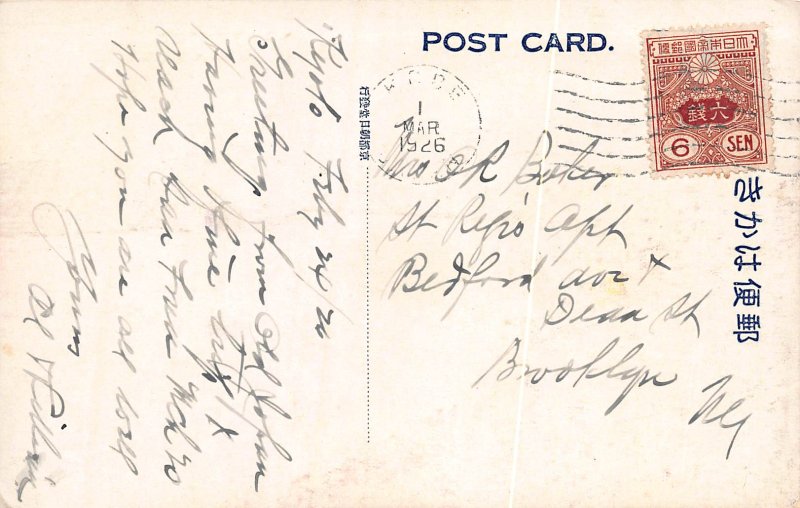 POST CARD.
Kyoto Feby 24/26
Greetings from Old Japan
Having fine trip &
reach San Fran Mch 20
Hope you are all well
Yours
Al &
京都朝日堂發行
KOBE
1
MAR
1926
大日本帝國郵便
六銭
6 SEN
きかは便郵
Mrs OR Baker
St Regis Apt
Bedford ave &
Dean St
Brooklyn
NY